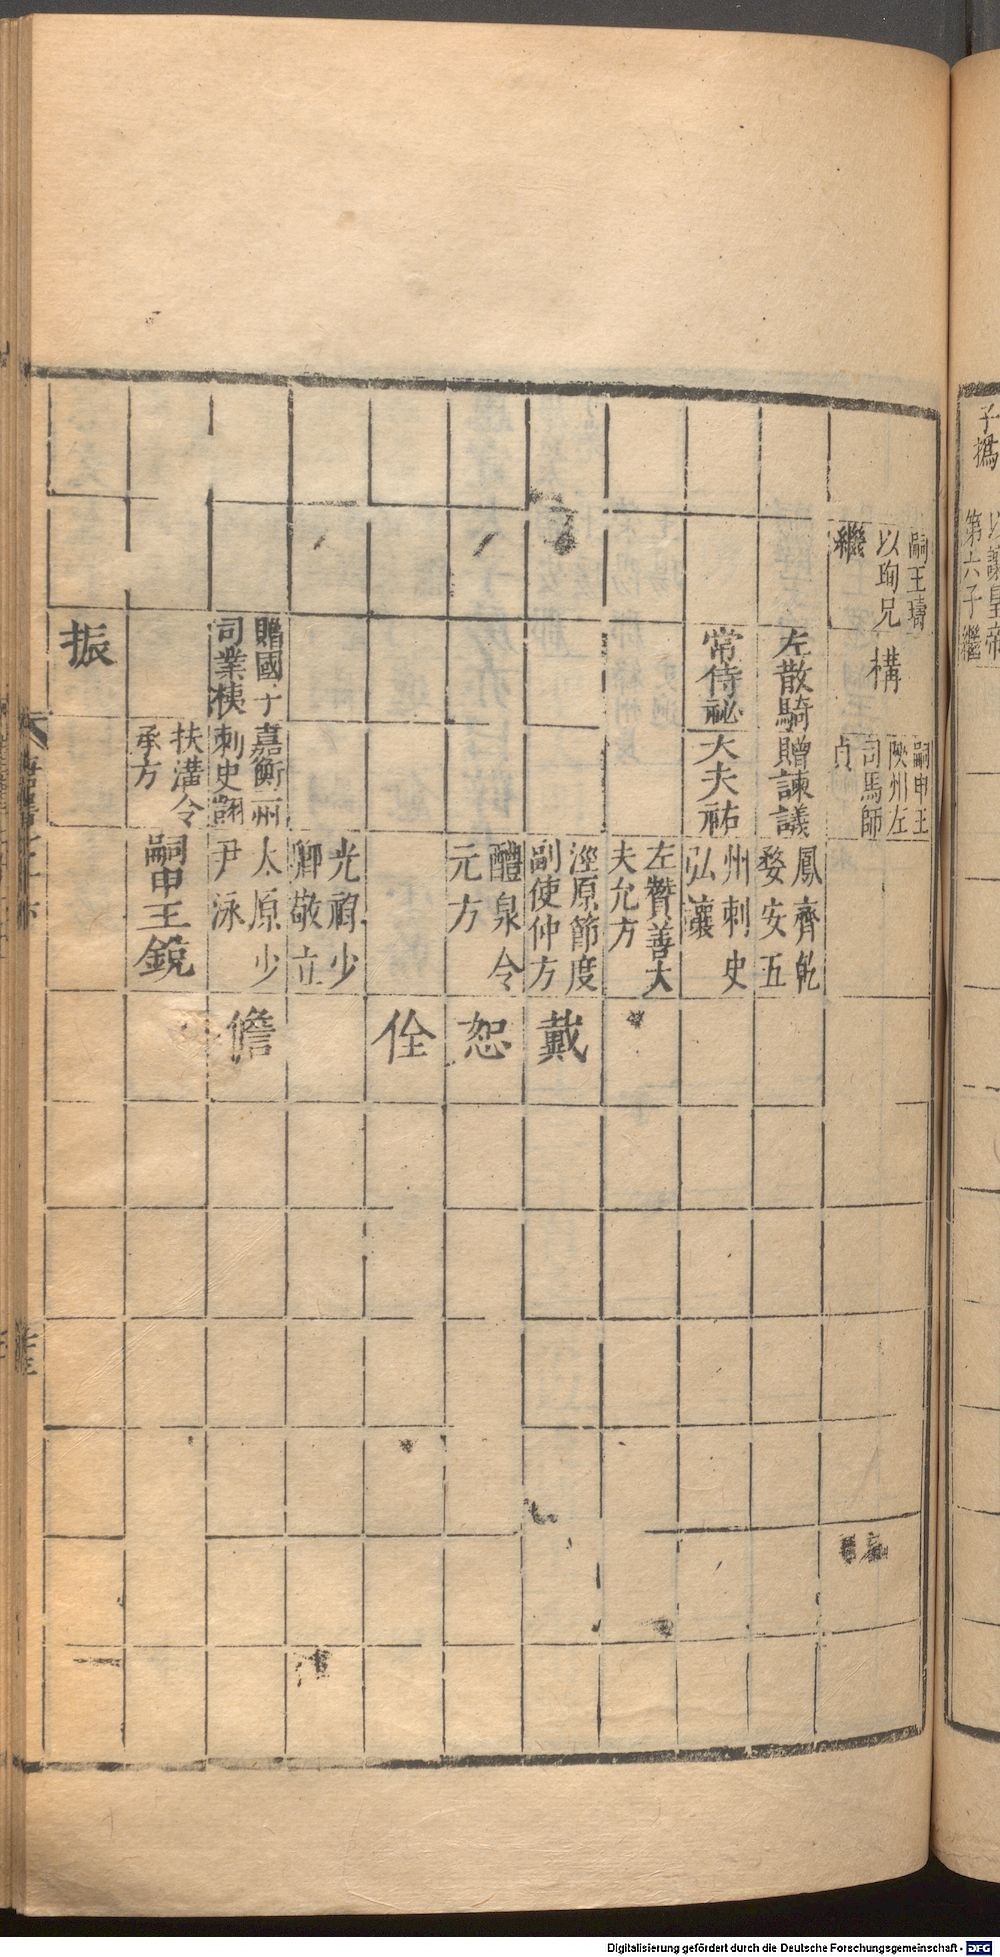 子撝
以讓皇帝
第六子繼
嗣王璹
以珣兄
繼
構
嗣申王
陜州左
司馬師
貞
左散騎
贈諫議
鳳齊乾
婺安五
常侍祕
大夫祐
州刺史
弘讓
左贊善大
夫允方
涇原節度
副使仲方
戴
醴泉令
元方
恕
佺
光祿少
卿敬立
贈國子
司業梜
嘉衡二州
刺史翿
太原少
尹泳
儋
扶溝令
承方
嗣申王銳
振
Digitalisierung gefördert durch die Deutsche Forschungsgemeinschaft - DFG